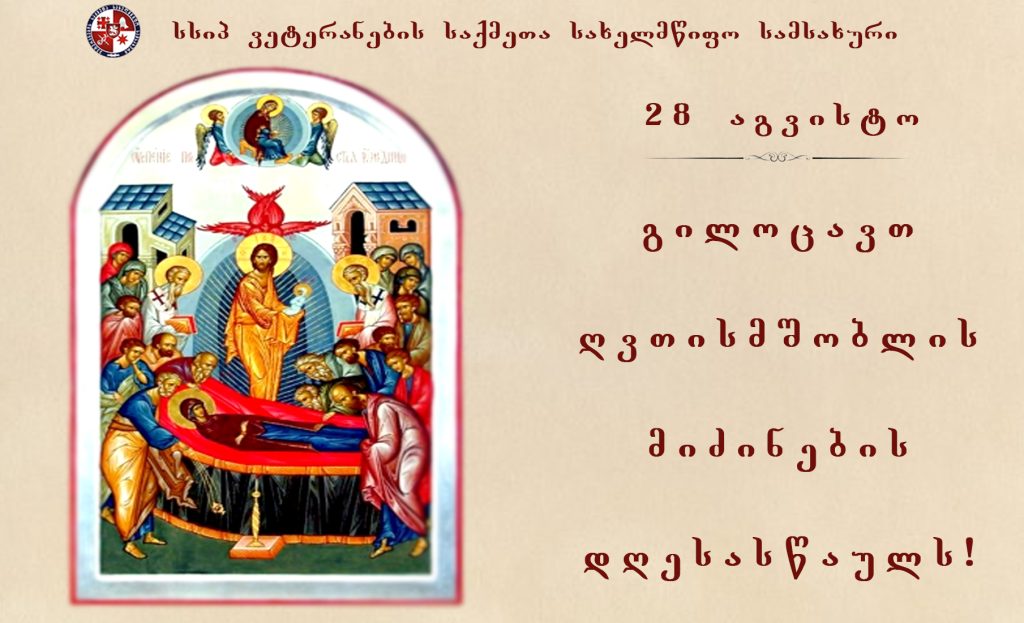 სსიპ ვეტერანების საქმეთა სახელმწიფო სამსახური
28 აგვისტო
გილოცავთ
ღვთისმშობლის
მიძინების
დღესასწაულს!